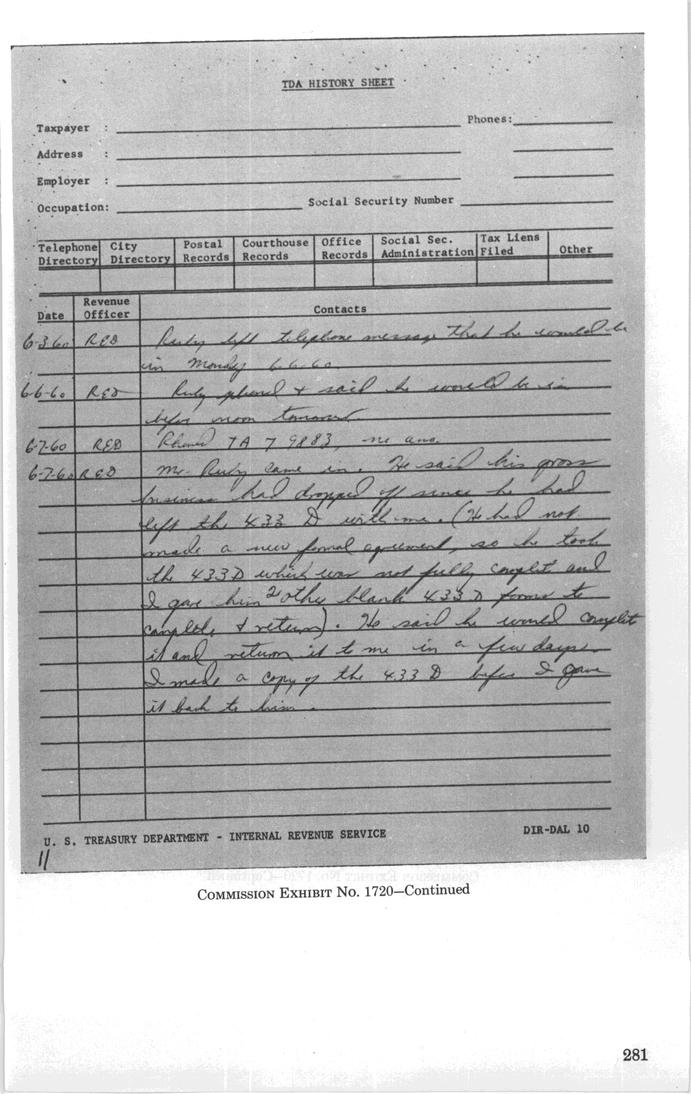 TDA HISTORY SHEET
Taxpayer : Phones:
Address :
Employer :
Occupation: Social Security Number
Telephone Directory City Directory Postal Records Courthouse Records Office Records Social Sec. Administration Tax Liens Filed Other
Date Revenue Officer Contacts
6-3-60 RED Ruby left telephone message that he would be
in Monday 6-6-60.
6-6-60 RED Ruby phoned + said he would be in
before noon tomorrow.
6-7-60 RED Phoned TA 7 9883, no ans.
6-7-60 RED Mr. Ruby came in. He said his gross
business had dropped off since he had
left the 433 D with me. (He had not
made a new formal agreement, so he took
the 433D which was not fully complete and
I gave him 2 other blank 433 D forms to
complete & return). He said he would complete
it and return it to me in a few days.
I made a copy of the 433 D before I gave
it back to him.
U. S. TREASURY DEPARTMENT - INTERNAL REVENUE SERVICE DIR-DAL 10
11
COMMISSION EXHIBIT NO. 1720—Continued
281